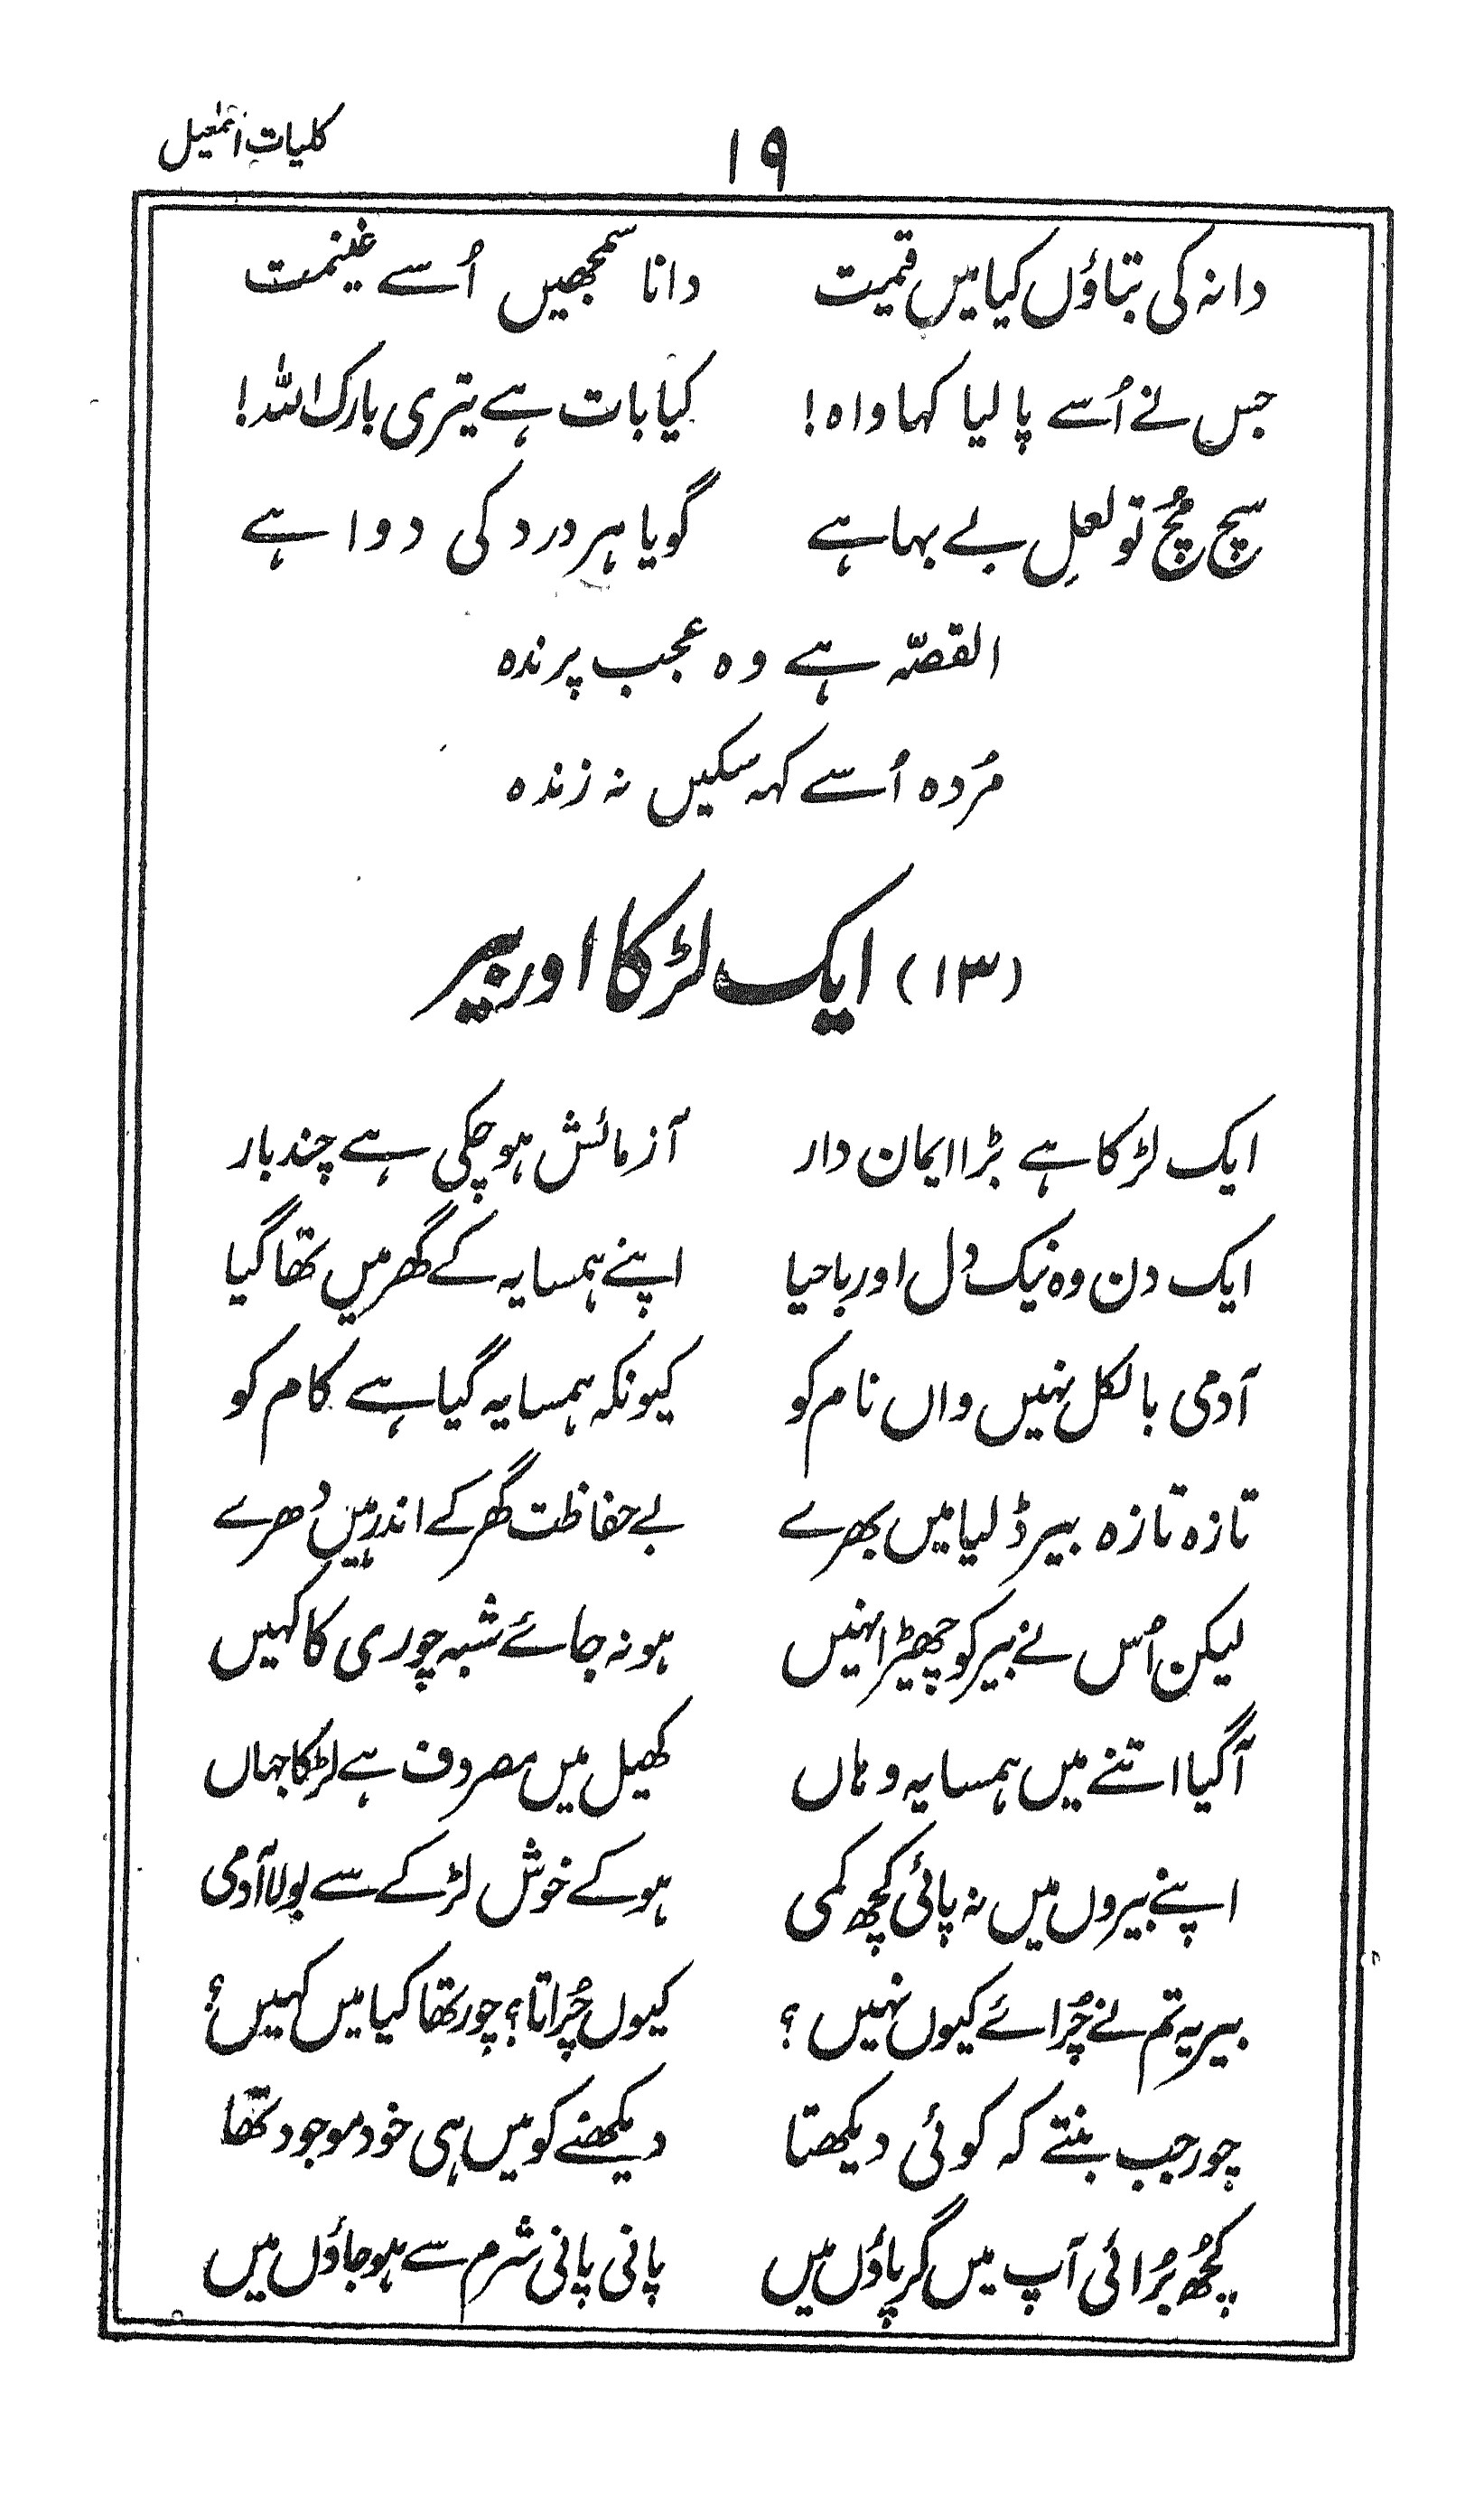 ۱۹ کلیاتِ اسمٰعیل
دانہ کی بتاؤں کیا میں قیمت دانا سمجھیں اُسے غنیمت
جس نے اُسے پا لیا کہا واہ! کیا بات ہے تیری بارک اللہ!
سچ مُچ تو لعلِ بے بہا ہے گویا ہر درد کی دوا ہے
القصّہ ہے وہ عجب پرندہ
مُردہ اُسے کہہ سکیں نہ زندہ
(۱۳) ایک لڑکا اور بیر
ایک لڑکا ہے بڑا ایمان دار آزمائش ہو چکی ہے چند بار
ایک دن وہ نیک دل اور باحیا اپنے ہمسایہ کے گھر میں تھا گیا
آدمی بالکل نہیں واں نام کو کیونکہ ہمسایہ گیا ہے کام کو
تازہ تازہ بیر ڈلیا میں بھرے بے حفاظت گھر کے اندر ہیں دھرے
لیکن اُس نے بیر کو چھیڑا نہیں ہو نہ جائے شبہ چوری کا کہیں
آگیا اتنے میں ہمسایہ وہاں کھیل میں مصروف ہے لڑکا جہاں
اپنے بیروں میں نہ پائی کچھ کمی ہو کے خوش لڑکے سے بولا آدمی
بیر یہ تم نے چُرائے کیوں نہیں؟ کیوں چُراتا؟ چور تھا کیا میں کہیں؟
چور جب بنتے کہ کوئی دیکھتا دیکھنے کو میں ہی خود موجود تھا
کچھ بُرائی آپ میں گر پاؤں میں پانی پانی شرم سے ہو جاؤں میں